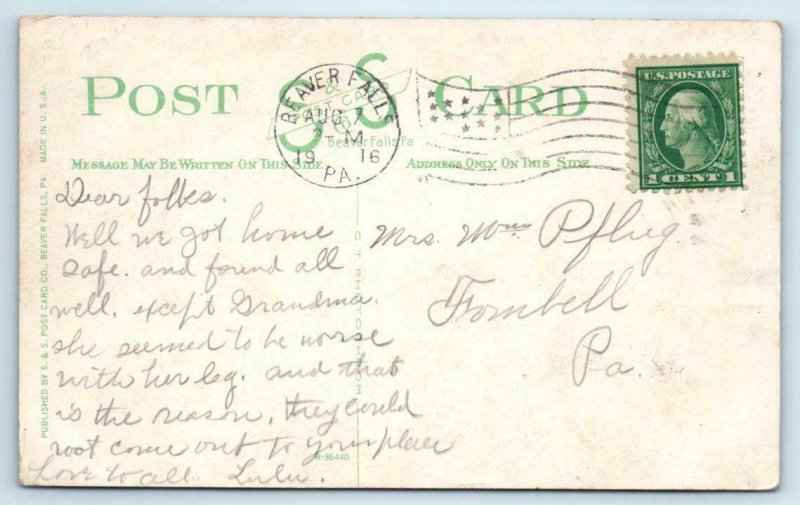 POST CARD
S & S
POST CARD CO
Beaver Falls, Pa.
BEAVER FALLS
AUG 7
M
19 16
PA.
U.S. POSTAGE
1 CENT 1
MESSAGE MAY BE WRITTEN ON THIS SIDE
ADDRESS ONLY ON THIS SIDE
Dear folks.
Well we got home
safe. and found all
well. except Grandma.
she seemed to be worse
with her leg. and that
is the reason, they could
not come out to your place
Love to all. Lulu.
Mrs. Wm Pflug.
Fombell
Pa.
PUBLISHED BY S. & S. POST CARD CO., BEAVER FALLS, PA. MADE IN U.S.A.
C.T. PHOTOCHROM
R-36440